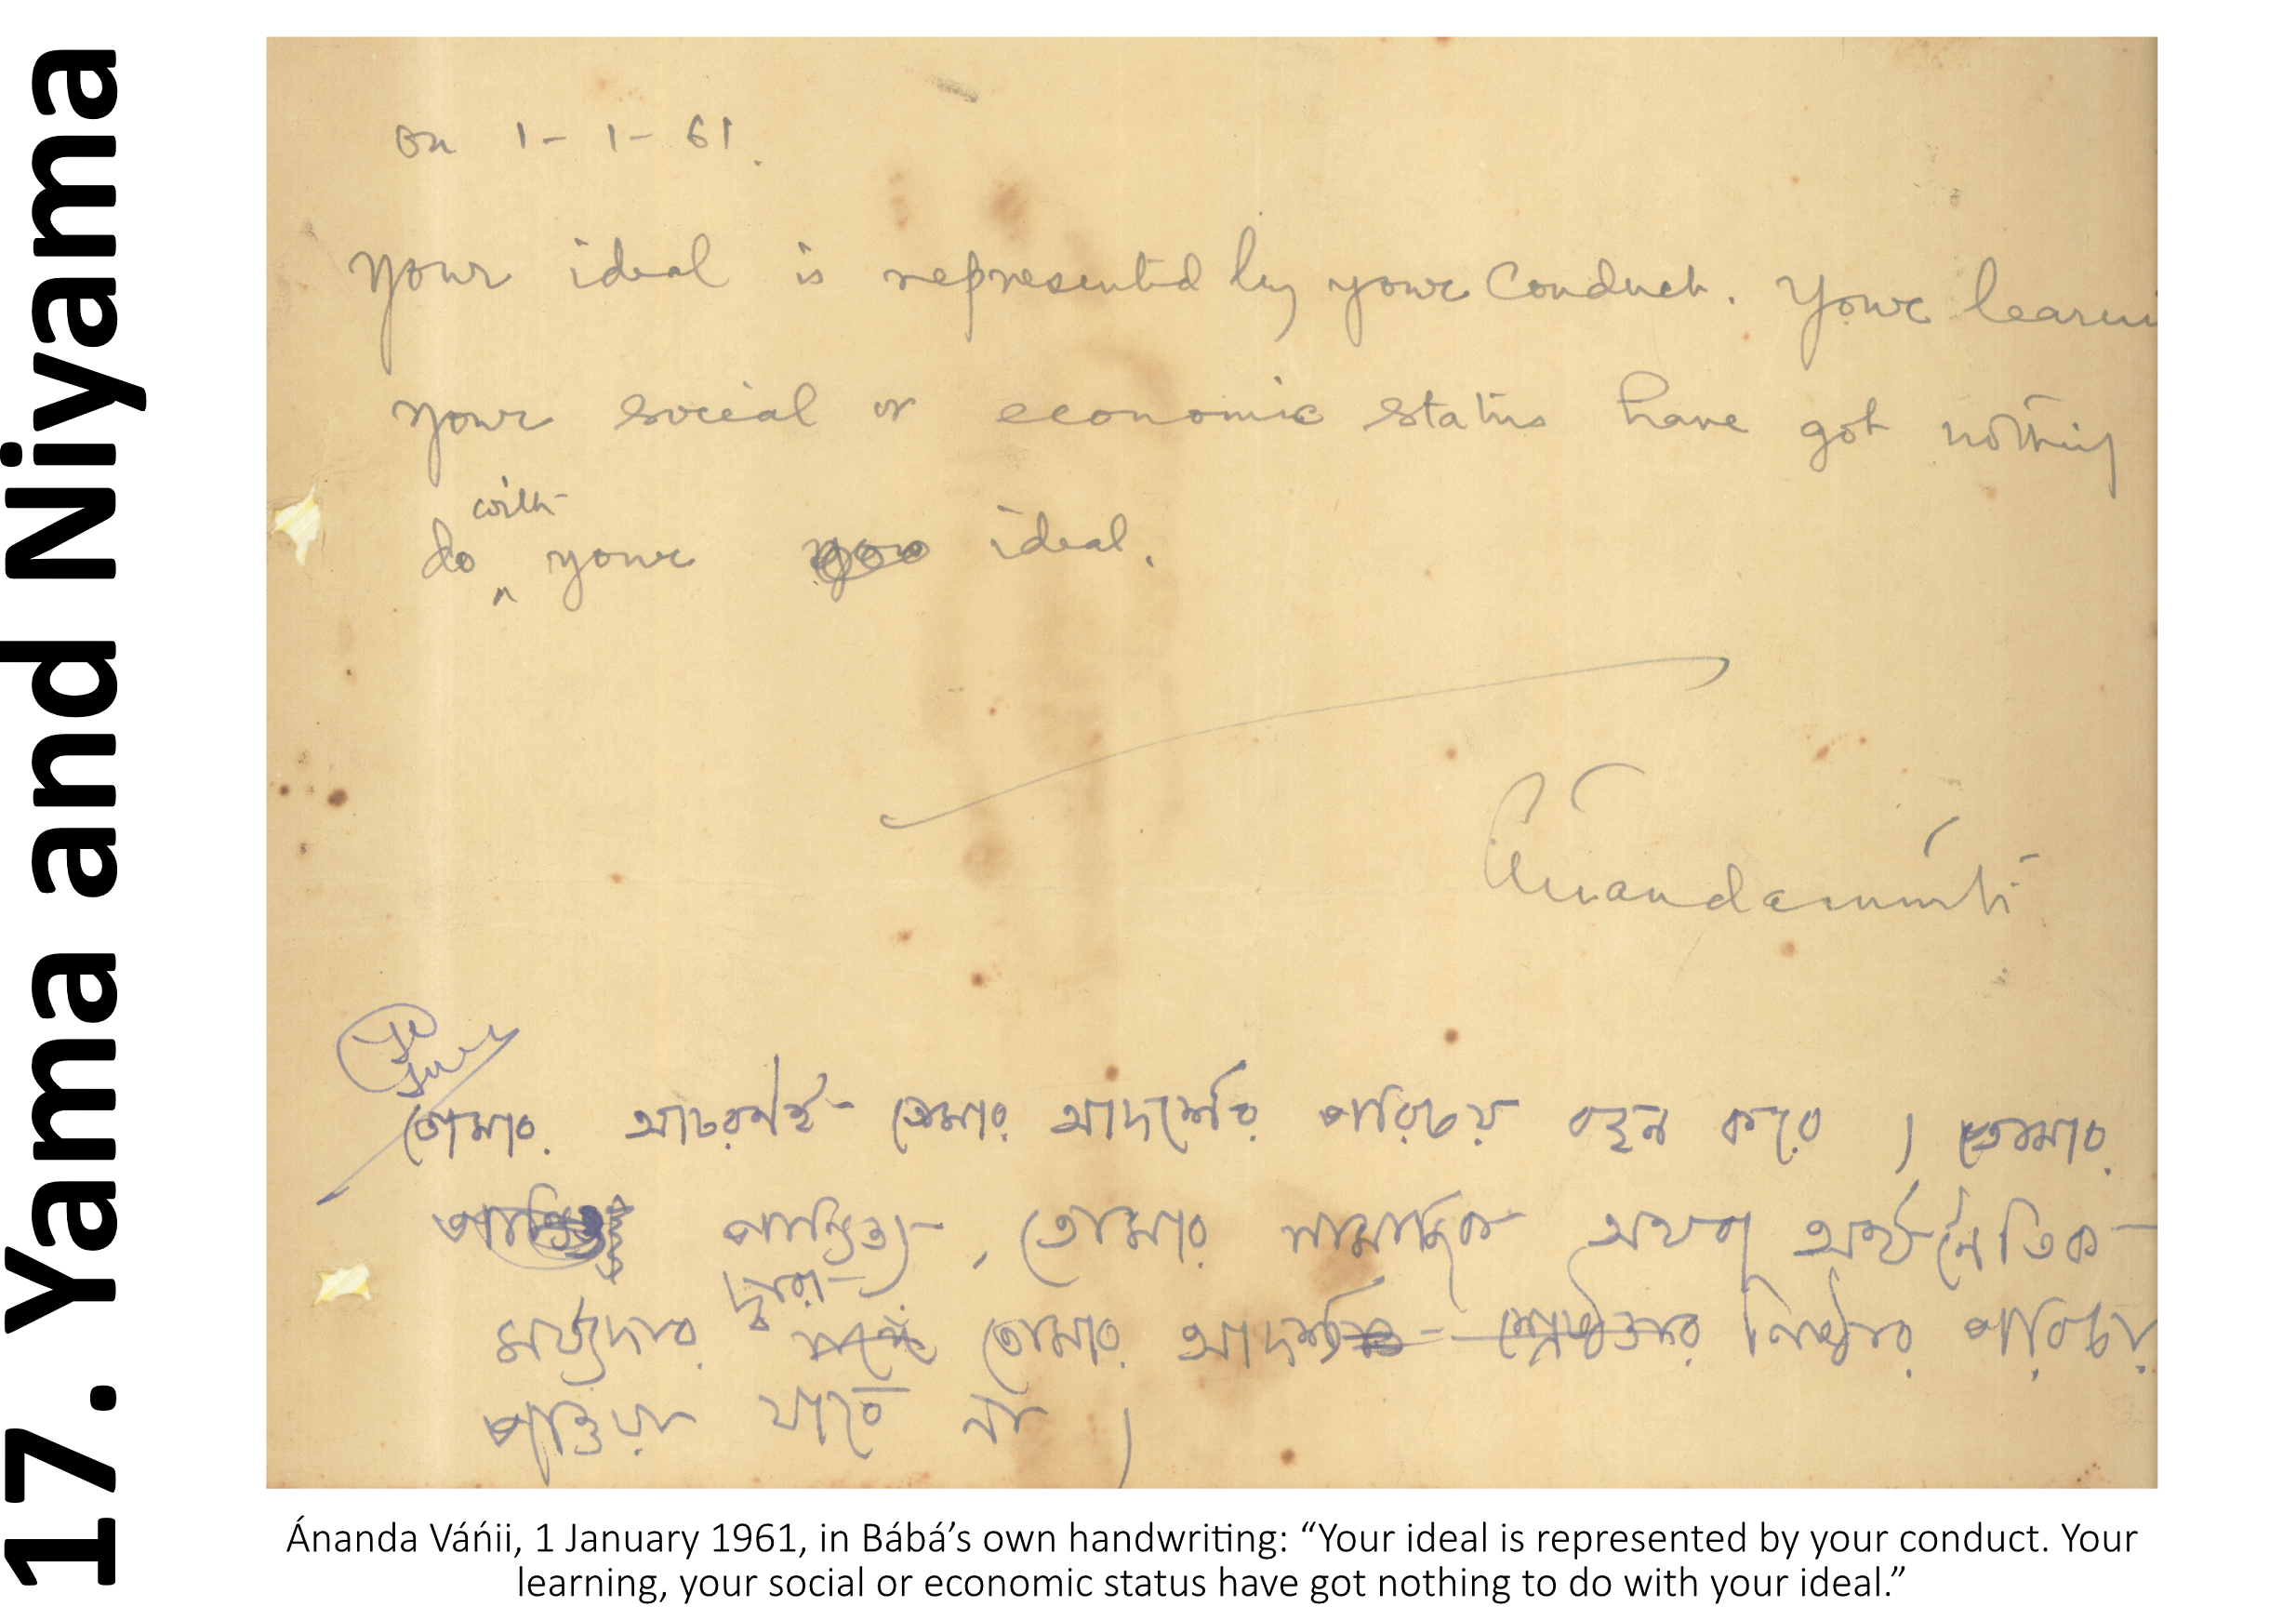 17. Yama and Niyama
On 1-1-61.
Your ideal is represented by your conduct. Your learni
your social or economic status have got nothing
do with your ideal.
Ánandamúrti
তোমার আচরণই তোমার আদর্শের পরিচয় বহন করে । তোমার
পাণ্ডিত্য, তোমার সামাজিক অথবা অর্থনৈতিক
মর্য্যাদার দ্বারা তোমার আদর্শ নিষ্ঠার পরিচয়
পাওয়া যাবে না ।
Ánanda Váńii, 1 January 1961, in Bábá’s own handwriting: “Your ideal is represented by your conduct. Your
learning, your social or economic status have got nothing to do with your ideal.”